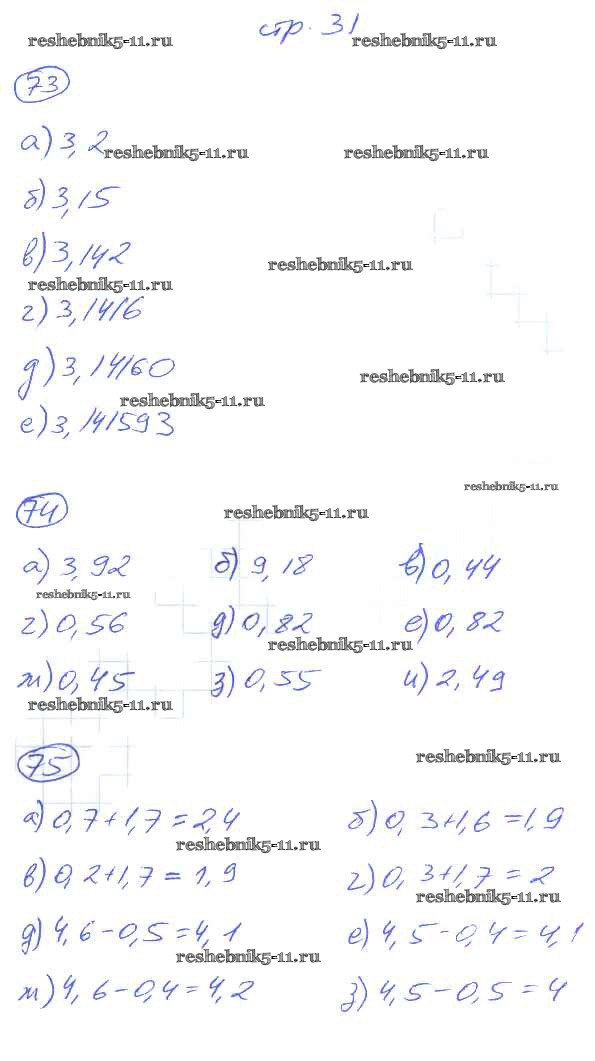 стр. 31
reshebnik5-11.ru reshebnik5-11.ru
73
а) 3,2
reshebnik5-11.ru reshebnik5-11.ru
б) 3,15
в) 3,142
reshebnik5-11.ru
reshebnik5-11.ru
г) 3,1416
д) 3,14160
reshebnik5-11.ru
reshebnik5-11.ru
е) 3,141593
reshebnik5-11.ru
74
reshebnik5-11.ru
а) 3,92 б) 9,18 в) 0,44
reshebnik5-11.ru
г) 0,56 д) 0,82 е) 0,82
reshebnik5-11.ru
ж) 0,45 з) 0,55 и) 2,49
reshebnik5-11.ru
75
reshebnik5-11.ru
а) 0,7+1,7=2,4 б) 0,3+1,6=1,9
reshebnik5-11.ru
в) 0,2+1,7=1,9 г) 0,3+1,7=2
reshebnik5-11.ru
д) 4,6-0,5=4,1 е) 4,5-0,4=4,1
reshebnik5-11.ru
ж) 4,6-0,4=4,2 з) 4,5-0,5=4